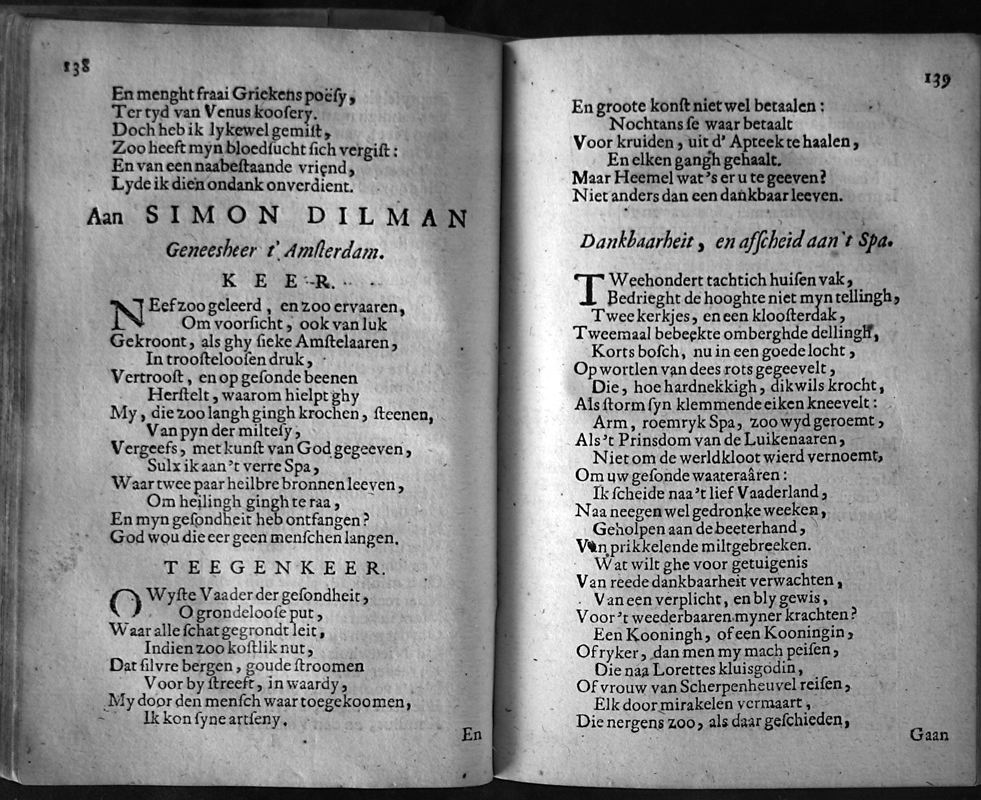 138
En menght fraai Grickens poësy,
Ter tyd van Venus koosery.
Doch heb ik lykewel gemist,
Zoo heeft myn bloedsucht sich vergist:
En van een naabestaande vriend,
Lyde ik dien ondank onverdient.
Aan SIMON DILMAN
Geneesheer t' Amsterdam.
KEER.
NEef zoo geleerd, en zoo ervaaren,
Om voorsicht, ook van luk
Gekroont, als ghy sieke Amstelaaren,
In troosteloosen druk,
Vertroost, en op gesonde beenen
Herstelt, waarom hielpt ghy
My, die zoo langh gingh krochen, steenen,
Van pyn der miltesy,
Vergeefs, met kunst van God gegeeven,
Sulx ik aan't verre Spa,
Waar twee paar heilbre bronnen leeven,
Om heilingh gingh te raa,
En myn gesondheit heb ontfangen?
God wou die eer geen menschen langen.
TEEGENKEER.
O Wyste Vaader der gesondheit,
O grondeloose put,
Waar alle schat gegrondt leit,
Indien zoo kostlik nut,
Dat silvre bergen, goude stroomen
Voor by streeft, in waardy,
My door den mensch waar toegekoomen,
Ik kon syne artseny.
En
139
En groote konst niet wel betaalen:
Nochtans se waar betaalt
Voor kruiden, uit d' Apteek te haalen,
En elken gangh gehaalt.
Maar Heemel wat's er u te geeven?
Niet anders dan een dankbaar leeven.
Dankbaarheit, en afscheid aan't Spa.
TWeehondert tachtich huisen vak,
Bedrieght de hooghte niet myn tellingh,
Twee kerkjes, en een kloosterdak,
Tweemaal bebeekte omberghde dellingh,
Korts bosch, nu in een goede locht,
Op wortlen van dees rots gegeevelt,
Die, hoe hardnekkigh, dikwils krocht,
Als storm syn klemmende eiken kneevelt:
Arm, roemryk Spa, zoo wyd geroemt,
Als't Prinsdom van de Luikenaaren,
Niet om de werldkloot wierd vernoemt,
Om uw gesonde waateraâren:
Ik scheide naa't lief Vaaderland,
Naa neegen wel gedronke weeken,
Geholpen aan de beeterhand,
Van prikkelende miltgebreeken.
Wat wilt ghe voor getuigenis
Van reede dankbaarheit verwachten,
Van een verplicht, en bly gewis,
Voor't weederbaaren myner krachten?
Een Kooningh, of een Kooningin,
Of ryker, dan men my mach peisen,
Die naa Lorettes kluisgodin,
Of vrouw van Scherpenheuvel reisen,
Elk door mirakelen vermaart,
Die nergens zoo, als daar geschieden,
Gaan